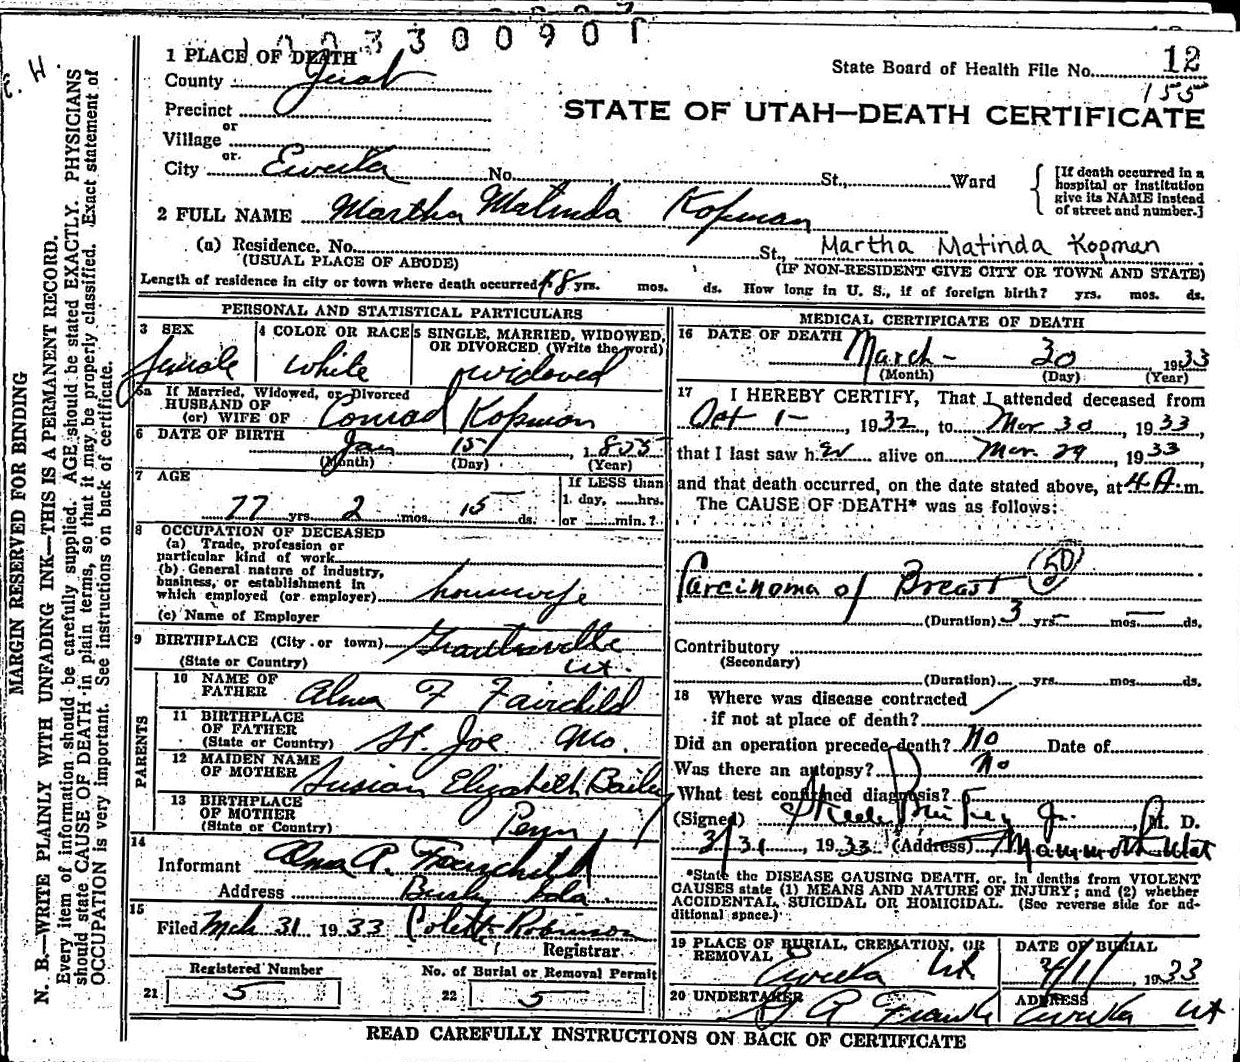 1003300901
1 PLACE OF DEATH
County Juab
Precinct
or
Village
or
City Eureka No. St., Ward
State Board of Health File No. 12
155
STATE OF UTAH—DEATH CERTIFICATE
[If death occurred in a hospital or institution give its NAME instead of street and number.]
2 FULL NAME Martha Malinda Kopman
(a) Residence. No. St., Martha Matinda Kopman
(USUAL PLACE OF ABODE) (IF NON-RESIDENT GIVE CITY OR TOWN AND STATE)
Length of residence in city or town where death occurred 48 yrs. mos. ds. How long in U. S., if of foreign birth? yrs. mos. ds.
PERSONAL AND STATISTICAL PARTICULARS
3 SEX
female
4 COLOR OR RACE
white
5 SINGLE, MARRIED, WIDOWED, OR DIVORCED (Write the word)
widowed
5a If Married, Widowed, or Divorced
HUSBAND OF
(or) WIFE OF Conrad Kopman
6 DATE OF BIRTH
Jan 15, 1855
(Month) (Day) (Year)
7 AGE
77 yrs. 2 mos. 15 ds.
If LESS than
1 day, hrs.
or min.?
8 OCCUPATION OF DECEASED
(a) Trade, profession or
particular kind of work
(b) General nature of industry,
business, or establishment in
which employed (or employer) housewife
(c) Name of Employer
9 BIRTHPLACE (City or town) Grantsville
(State or Country) Ut.
PARENTS
10 NAME OF
FATHER Alma F Fairchild
11 BIRTHPLACE
OF FATHER
(State or Country) St. Joe Mo.
12 MAIDEN NAME
OF MOTHER Susian Elizabeth Bailey
13 BIRTHPLACE
OF MOTHER
(State or Country) Penn
14
Informant Alma A. Fairchild
Address Ida.
15
Filed Mch 31 1933 Colett Robinson
Registrar
Registered Number
21 5
No. of Burial or Removal Permit
22 5
MEDICAL CERTIFICATE OF DEATH
16 DATE OF DEATH
March- 30 1933
(Month) (Day) (Year)
17 I HEREBY CERTIFY, That I attended deceased from
Oct 1-, 1932, to Mar 30, 1933,
that I last saw her alive on Mar. 29, 1933,
and that death occurred, on the date stated above, at 4 A.m.
The CAUSE OF DEATH* was as follows:
Carcinoma of Breast 50
(Duration) 3 yrs. — mos. — ds.
Contributory
(Secondary)
(Duration) yrs. mos. ds.
18 Where was disease contracted
if not at place of death?
Did an operation precede death? No Date of
Was there an autopsy? No
What test confirmed diagnosis?
(Signed) Steele Jr. M. D.
3/31, 1933 (Address) Mammoth Utah
*State the DISEASE CAUSING DEATH, or, in deaths from VIOLENT
CAUSES state (1) MEANS AND NATURE OF INJURY; and (2) whether
ACCIDENTAL, SUICIDAL OR HOMICIDAL. (See reverse side for ad-
ditional space.)
19 PLACE OF BURIAL, CREMATION, OR
REMOVAL
Eureka Ut
DATE OF BURIAL
4/1, 1933
20 UNDERTAKER
A Franks
ADDRESS
Eureka Ut
READ CAREFULLY INSTRUCTIONS ON BACK OF CERTIFICATE
MARGIN RESERVED FOR BINDING
N. B.—WRITE PLAINLY WITH UNFADING INK—THIS IS A PERMANENT RECORD.
Every item of information should be carefully supplied. AGE should be stated EXACTLY. PHYSICIANS
should state CAUSE OF DEATH in plain terms, so that it may be properly classified. Exact statement of
OCCUPATION is very important. See instructions on back of certificate.